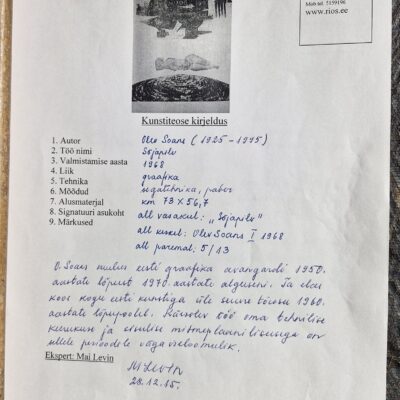 Mob tel. 5159196
www.rios.ee
Kunstiteose kirjeldus
1. Autor Olev Soans (1925 - 1995)
2. Töö nimi Sõjapilv
3. Valmistamise aasta 1968
4. Liik graafika
5. Tehnika segatehnika, paber
6. Mõõdud km 73 x 56,7
7. Alusmaterjal all vasakul: "Sõjapilv"
8. Signatuuri asukoht all keskel: Olev Soans I 1968
9. Märkused all paremal: 5/13
O. Soans kuulus eesti graafika avangardi 1950.
aastate lõpust 1970. aastate alguseni. Ta elas
koos kogu eesti kunstiga üle suure tõusu 1960.
aastate lõpupoolel. Käesolev töö oma tehnilise
keerukuse ja sisulise mitmeplaanilisusega on
sellele perioodile väga iseloomulik.
Ekspert: Mai Levin
M. LEVIN
28.12.15.